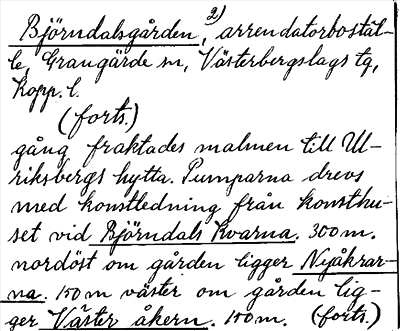 Björndalsgården, 2) arrendatorbostäl-
le, Grangärde sn, Västerbergslags tg,
Kopp. l.
(forts.)
gång fraktades malmen till Ul-
riksbergs hytta. Pumparna drevs
med konstledning från konsthu-
set vid Björndals Kvarna. 300 m.
nordöst om gården ligger Nyåkrar-
na. 150 m väster om gården lig-
ger Väster åkern. 150 m. (forts.)